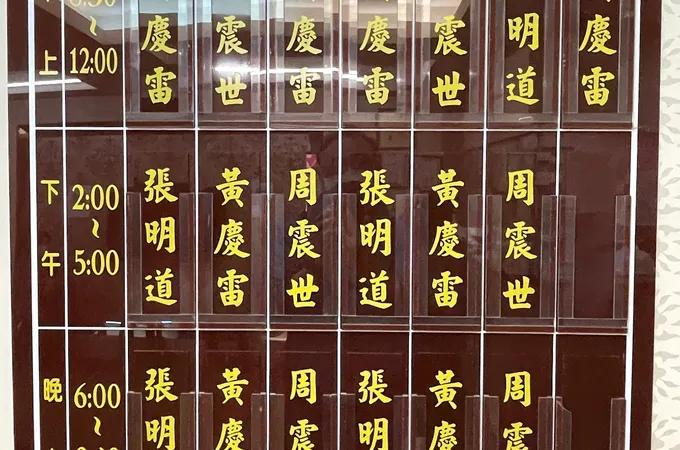 上
～
12:00
慶雷
震世
慶雷
慶雷
震世
明道
慶雷
下午
2:00
～
5:00
張明道
黃慶雷
周震世
張明道
黃慶雷
周震世
晚
6:00
～
張明
黃慶
周震
張明
黃慶
周震